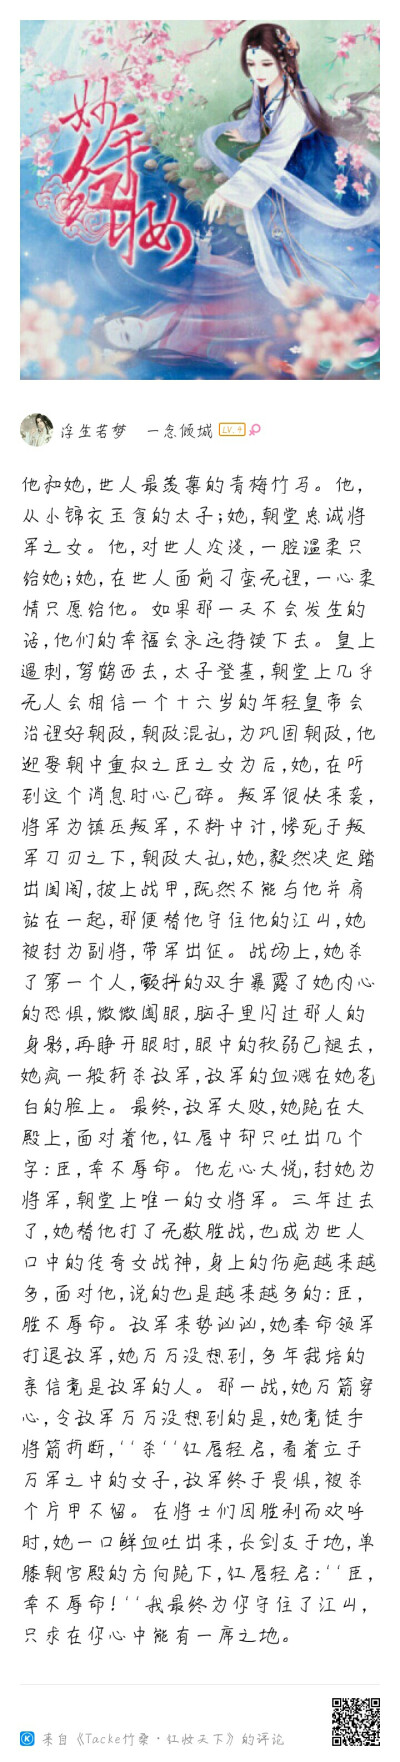 妙手
红妆
浮生若梦 一念倾城 LV.4
他和她,世人最羡慕的青梅竹马。他,
从小锦衣玉食的太子;她,朝堂忠诚将
军之女。他,对世人冷淡,一腔温柔只
给她;她,在世人面前刁蛮无理,一心柔
情只愿给他。如果那一天不会发生的
话,他们的幸福会永远持续下去。皇上
遇刺,驾鹤西去,太子登基,朝堂上几乎
无人会相信一个十六岁的年轻皇帝会
治理好朝政,朝政混乱,为巩固朝政,他
迎娶朝中重权之臣之女为后,她,在听
到这个消息时心已碎。叛军很快来袭,
将军为镇压叛军,不料中计,惨死于叛
军刀刃之下,朝政大乱,她,毅然决定踏
出闺阁,披上战甲,既然不能与他并肩
站在一起,那便替他守住他的江山,她
被封为副将,带军出征。战场上,她杀
了第一个人,颤抖的双手暴露了她内心
的恐惧,微微阖眼,脑子里闪过那人的
身影,再睁开眼时,眼中的软弱已褪去,
她疯一般斩杀敌军,敌军的血溅在她苍
白的脸上。最终,敌军大败,她跪在大
殿上,面对着他,红唇中却只吐出几个
字:臣,幸不辱命。他龙心大悦,封她为
将军,朝堂上唯一的女将军。三年过去
了,她替他打了无数胜战,也成为世人
口中的传奇女战神,身上的伤疤越来越
多,面对他,说的也是越来越多的:臣,
胜不辱命。敌军来势汹汹,她奉命领军
打退敌军,她万万没想到,多年栽培的
亲信竟是敌军的人。那一战,她万箭穿
心,令敌军万万没想到的是,她竟徒手
将箭折断,‘‘杀‘‘红唇轻启,看着立于
万军之中的女子,敌军终于畏惧,被杀
个片甲不留。在将士们因胜利而欢呼
时,她一口鲜血吐出来,长剑支于地,单
膝朝宫殿的方向跪下,红唇轻启:‘‘臣,
幸不辱命!‘‘我最终为你守住了江山,
只求在你心中能有一席之地。
来自《Tacke竹桑·红妆天下》的评论